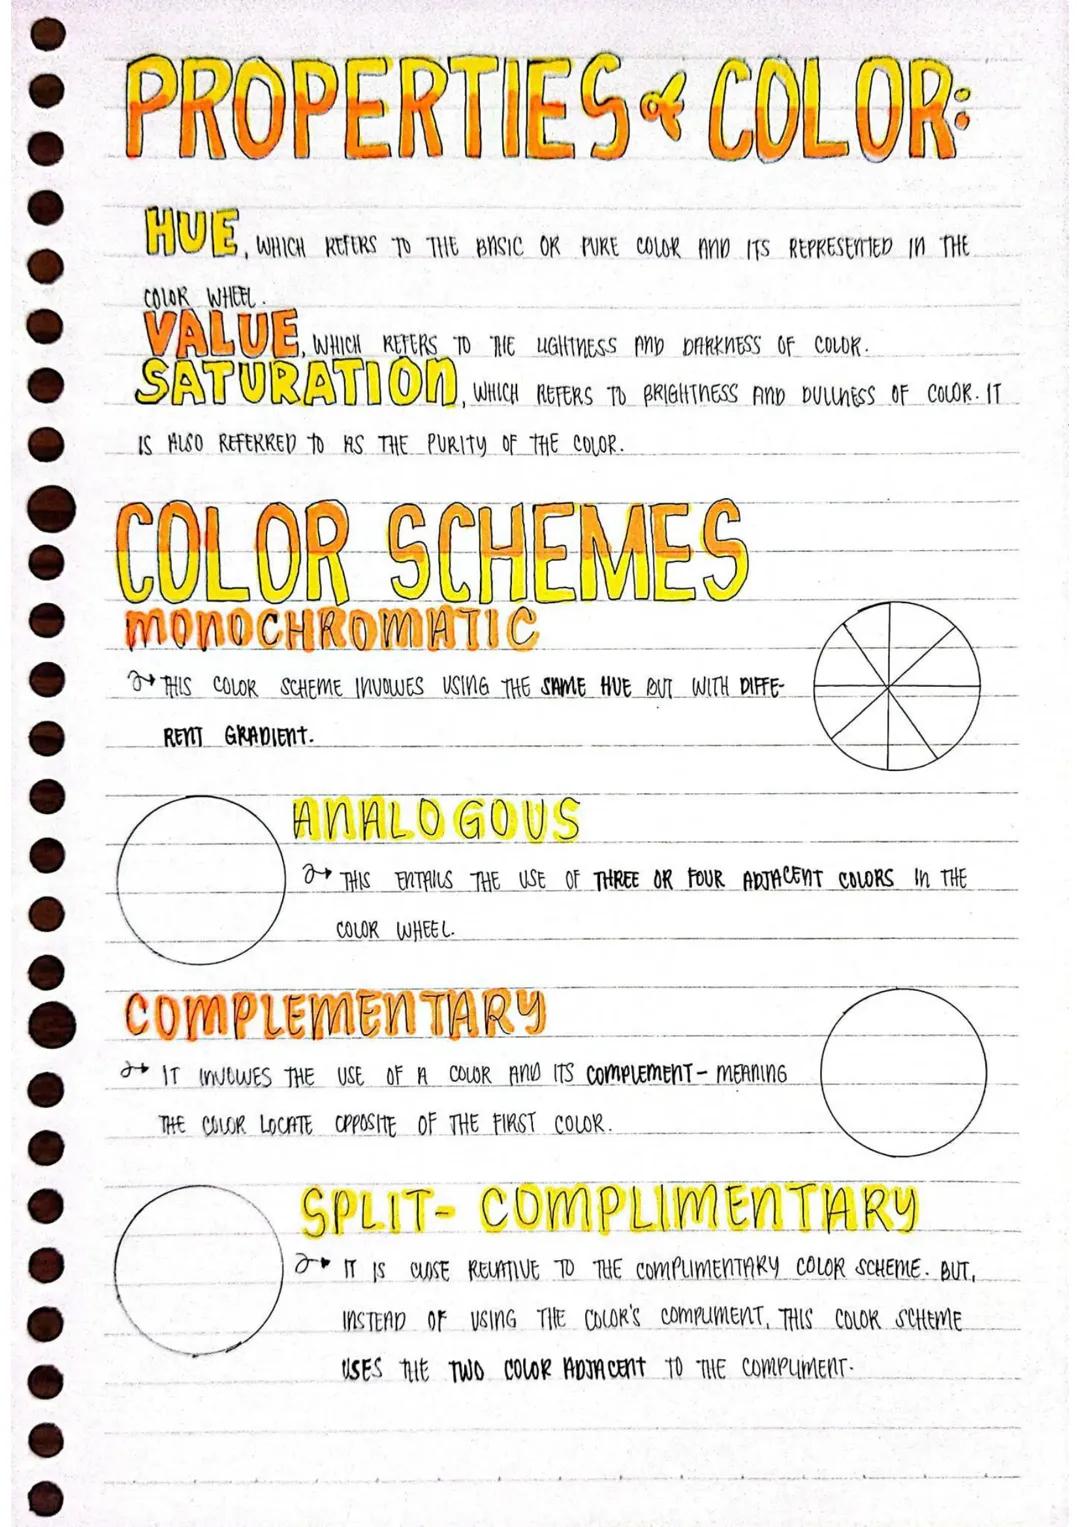 PROPERTIES of COLOR:
HUE, WHICH REFERS TO THE BASIC OR PURE COLOR AND ITS REPRESENTED IN THE
COLOR WHEEL.
VALUE, WHICH REFERS TO THE LIGHTNESS AND DARKNESS OF COLOR.
SATURATION, WHICH REFERS TO BRIGHTNESS AND DULLNESS OF COLOR. IT
IS ALSO REFERRED TO AS THE PURITY OF THE COLOR.
COLOR SCHEMES
MONOCHROMATIC
THIS COLOR SCHEME INVOLVES USING THE SAME HUE BUT WITH DIFFE-
RENT GRADIENT.
ANALOGOUS
THIS ENTAILS THE USE OF THREE OR FOUR ADJACENT COLORS IN THE
COLOR WHEEL.
COMPLEMENTARY
IT INVOLVES THE USE OF A COLOR AND ITS COMPLEMENT- MEANING
THE COLOR LOCATE OPPOSITE OF THE FIRST COLOR.
SPLIT- COMPLIMENTARY
IT IS CLOSE RELATIVE TO THE COMPLIMENTARY COLOR SCHEME. BUT,
INSTEAD OF USING THE COLOR'S COMPLIMENT, THIS COLOR SCHEME
USES THE TWO COLOR ADJACENT TO THE COMPLIMENT.